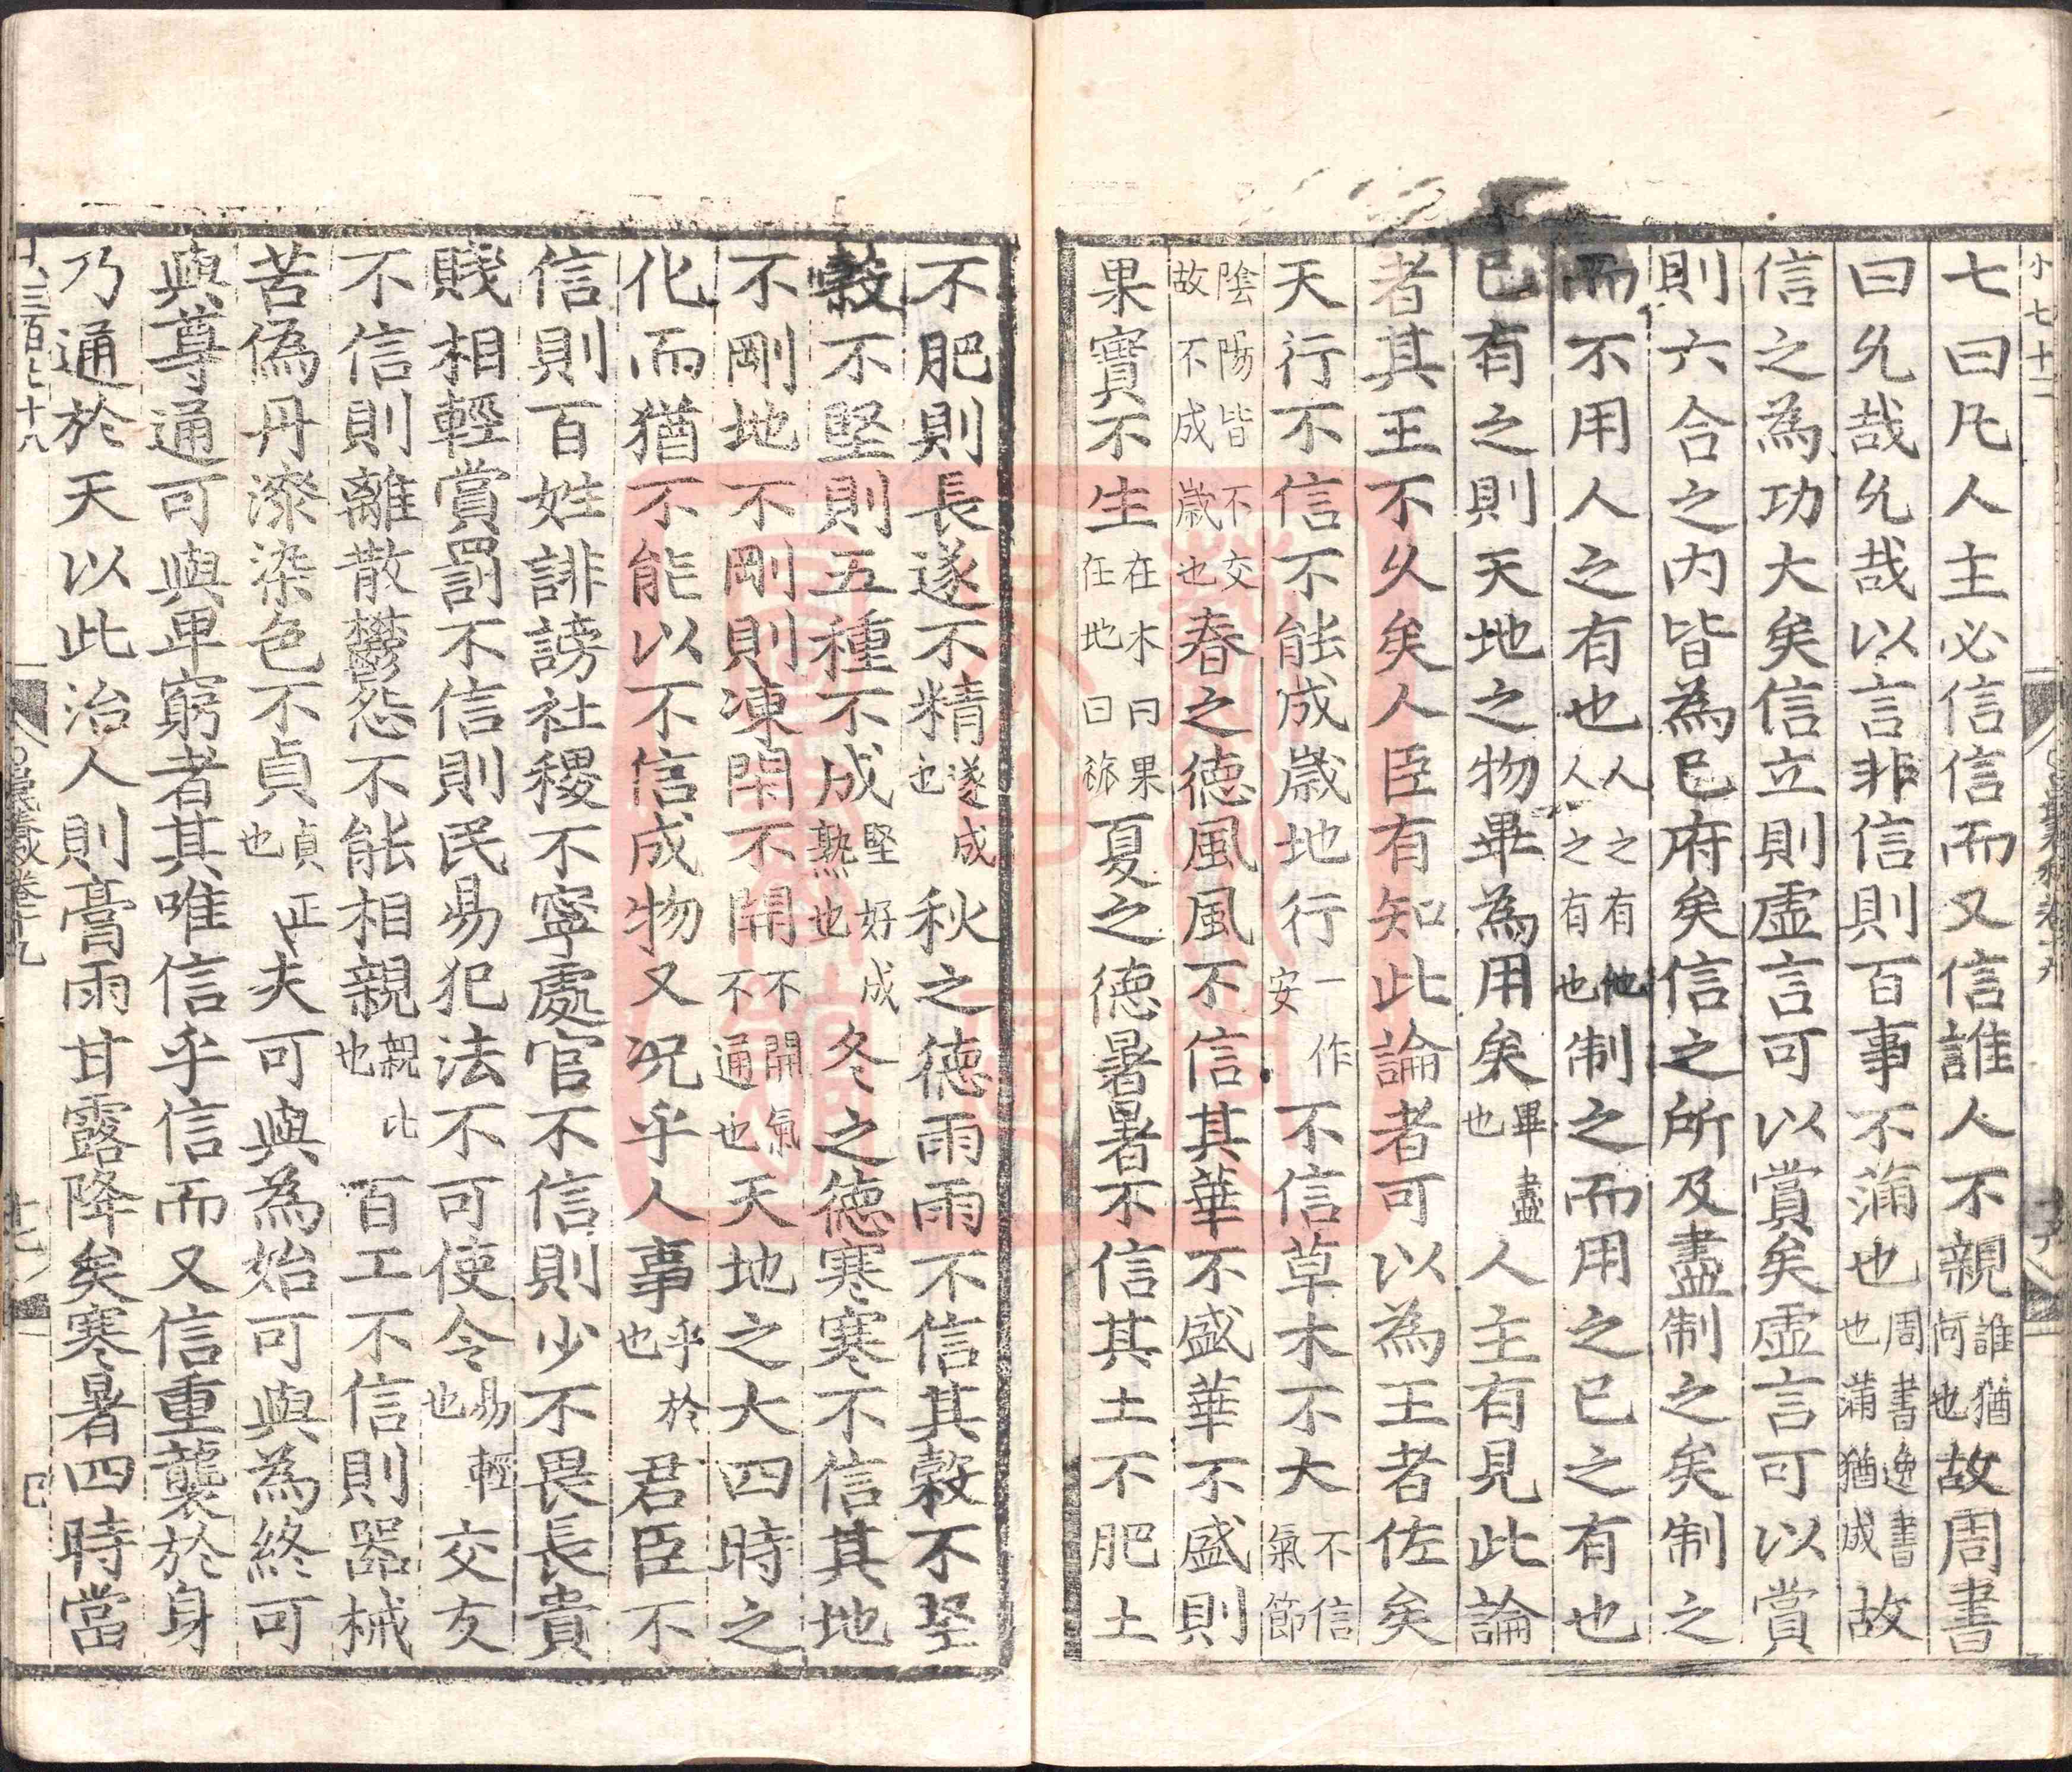 七曰凡人主必信信而又信誰人不親誰猶何也故周書
曰允哉允哉以言非信則百事不滿也周書逸書也滿猶成故
信之為功大矣信立則虛言可以賞矣虛言可以賞
則六合之内皆為已府矣信之所及盡制之矣制之
而不用人之有也人之有他人之有也制之而用之已之有也
已有之則天地之物畢為用矣畢盡也人主有見此論
者其王不久矣人臣有知此論者可以為王者佐矣
天行不信不能成歲地行一作安不信草木不大不信氣節
陰陽皆不交故不成歲也春之德風風不信其華不盛華不盛則
果實不生在木曰果在地曰蓏夏之德暑暑不信其土不肥土
不肥則長遂不精遂成也秋之德雨雨不信其穀不堅
穀不堅則五種不成堅好成熟也冬之德寒寒不信其地
不剛地不剛則凍閉不開不開氣不通也天地之大四時之
化而猶不能以不信成物又況乎人事乎於也君臣不
信則百姓誹謗社稷不寧處官不信則少不畏長貴
賤相輕賞罰不信則民易犯法不可使令易輕也交友
不信則離散鬱怨不能相親親比也百工不信則器械
苦偽丹漆染色不貞貞正也夫可與為始可與為終可
與尊通可與卑窮者其唯信乎信而又信重襲於身
乃通於天以此治人則膏雨甘露降矣寒暑四時當